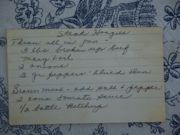 Steak Hoagies
Throw all in pan -
3 lbs. broken up beef
2 onions
2 gr. peppers - sliced thin
Brown meat - add salt & pepper
2 cans tomato sauce
1/2 bottle Ketchup